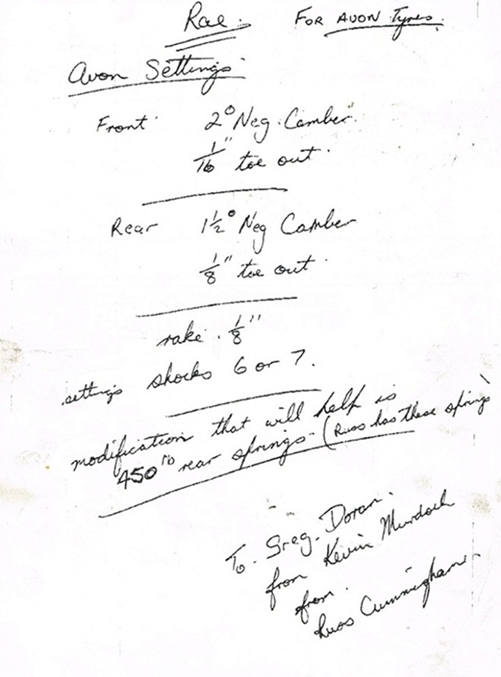 Rae.
FOR AVON Tyres.
Avon Settings
Front 2° Neg. Camber.
1/16" toe out.
Rear 1½° Neg Camber
1/8" toe out.
rake. 1/8"
settings shocks 6 or 7.
modification that will help is
450 lb rear springs - (Russ has these springs
To. Greg. Doran.
from Kevin Murdoch
from.
Russ Cunningham.